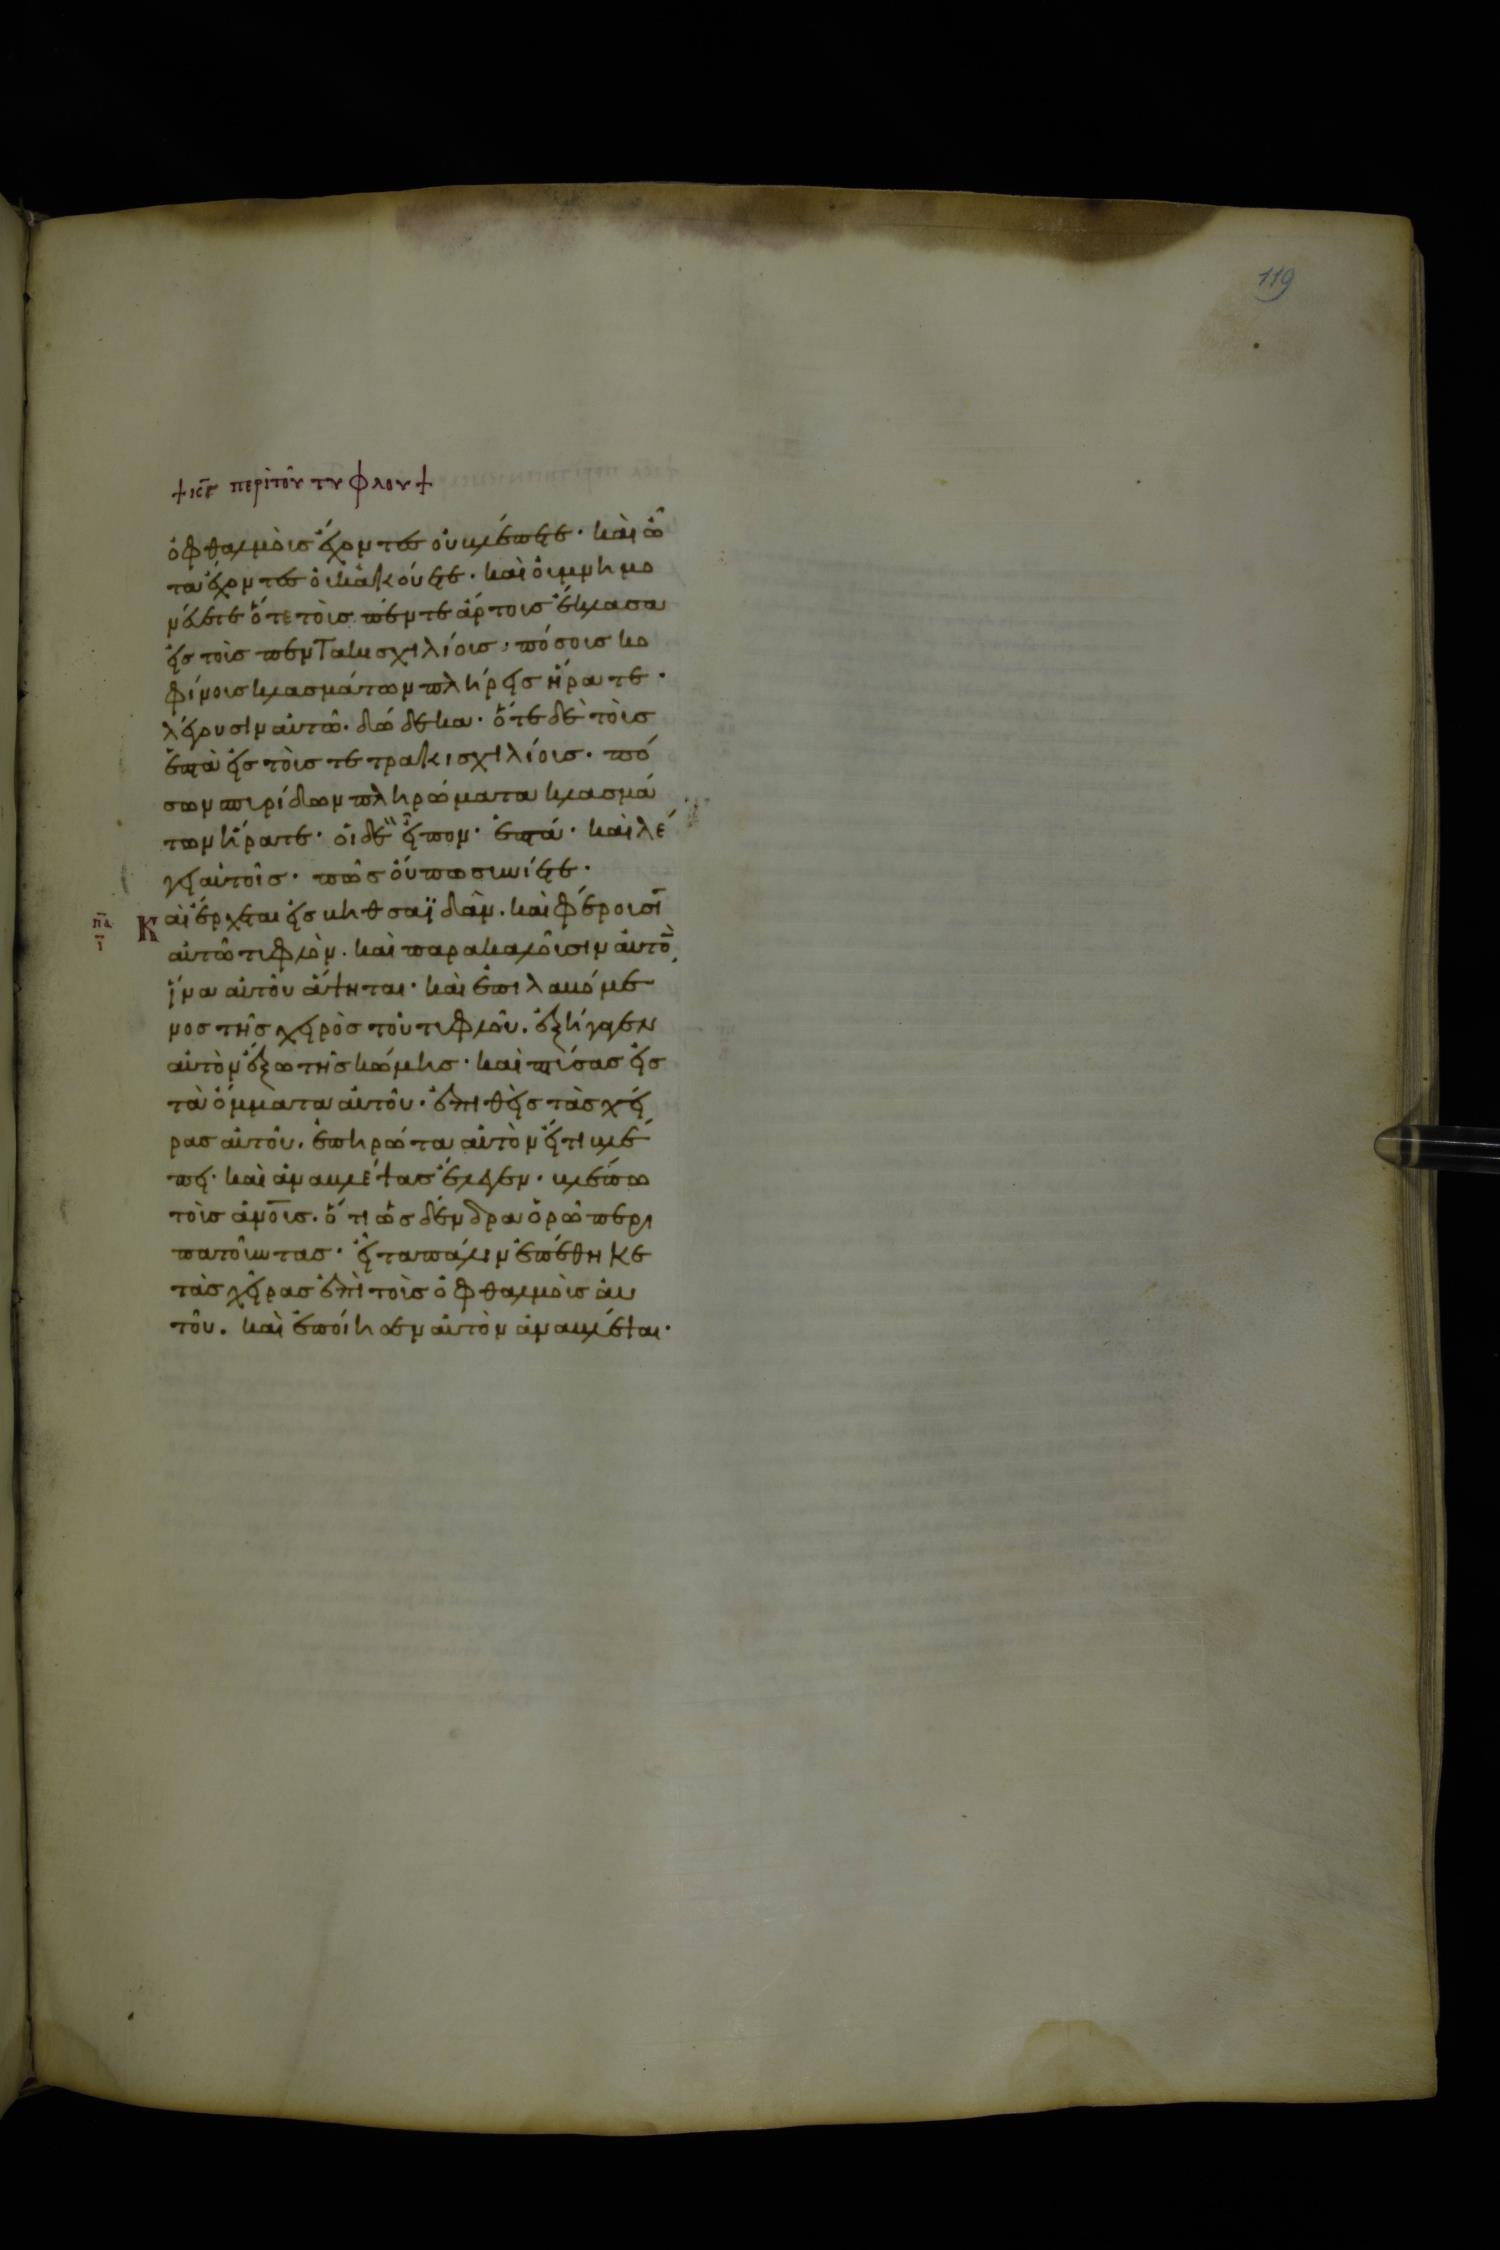 119
+ κε περὶ τοῦ τυφλου +
ὀφθαλμοὺς ἔχοντες οὐ βλέπετε· καὶ ὦ
τα ἔχοντες οὐκ ἀκούετε· καὶ οὐ μνημο
νεύετε ὅτε τοὺς πέντε ἄρτους ἔκλασα
εἰς τοὺς πεντακισχιλίους· πόσους κο
φίνους κλασμάτων πλήρεις ἤρατε·
λέγουσιν αὐτῶ· δώδεκα· ὅτε δὲ τοὺς
ἑπτὰ εἰς τοὺς τετρακισχιλίους· πό
σων σπυρίδων πληρώματα κλασμά
των ἤρατε· οἱ δὲ εἶπον· ἑπτά· καὶ λέ
γει αὐτοῖς· πῶς οὔπω συνίετε·
πα ι Καὶ ἔρχεται εἰς βηθσαϊδὰν· καὶ φέρουσι̅
αὐτῶ τυφλὸν· καὶ παρακαλοῦσιν αὐτὸ̅,
ἵνα αὐτοῦ ἅψηται· καὶ ἐπιλαβόμε
νος τῆς χειρὸς τοῦ τυφλοῦ· ἐξήγαγεν
αὐτὸν ἔξω τῆς κώμης· καὶ πτύσας εἰς
τὰ ὄμματα αὐτοῦ· ἐπιθεὶς τὰς χεῖ
ρας αὐτοῦ· ἐπηρώτα αὐτὸν εἴ τι βλέ
πει· καὶ ἀναβλέψας ἔλεγεν· βλέπω
τοὺς ἀν̅ο̅υς· ὅτι ὡς δένδρα ὁρῶ περι
πατοῦντας· εἶτα πάλιν ἐπέθηκε
τὰς χεῖρας ἐπὶ τοὺς ὀφθαλμοὺς αὐ
τοῦ· καὶ ἐποίησεν αὐτὸν ἀναβλέψαι·